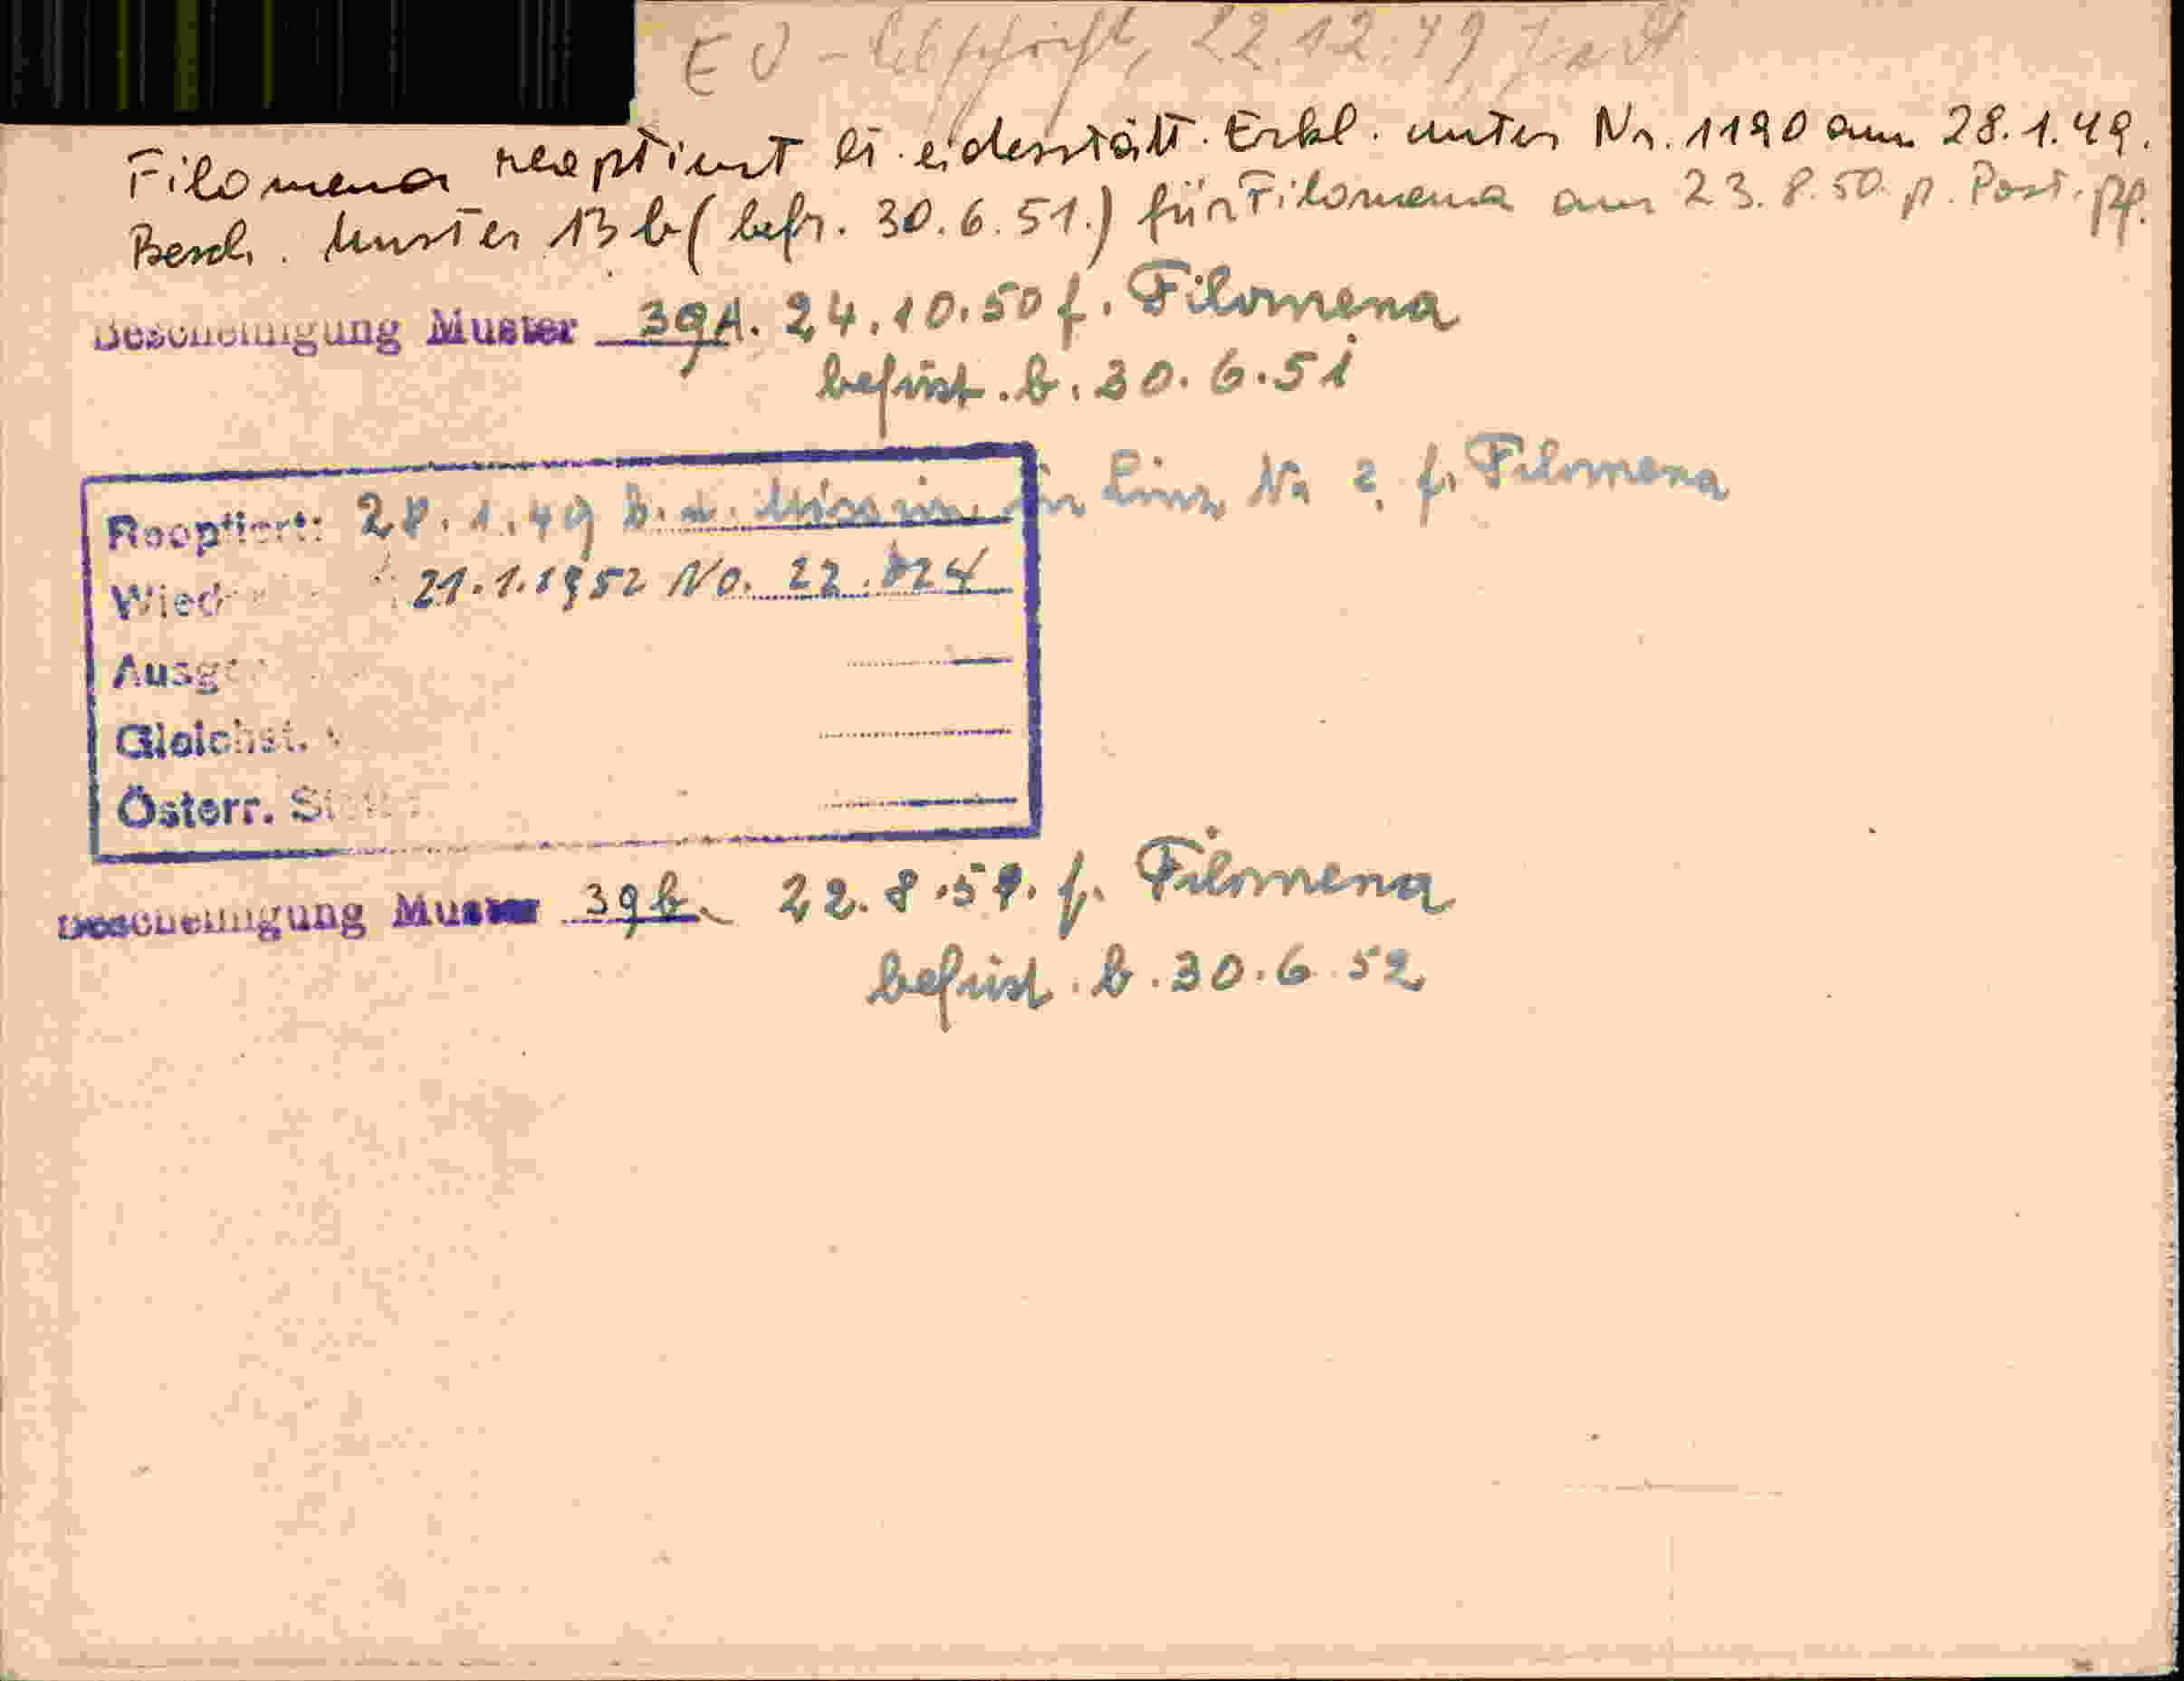 EV - Abschrift, 22.12.49
Filomena reoptiert lt. eidesstätt. Erkl. unter Nr. 1190 am 28.1.49.
Besch. Muster 13 b (befr. 30.6.51.) für Filomena am 23.8.50. p. Post.
Bescheinigung Muster 39A. 24.10.50 f. Filomena
befrist. b. 30.6.51
Reoptiert: 28.1.49 b. d. Mission in Linz No ?. f. Filomena
Wied 21.1.1952 No. 22.
Ausge
Gleichst. v
Österr. St
Bescheinigung Muster 39b. 22.8.51. f. Filomena
befrist. b. 30.6.52